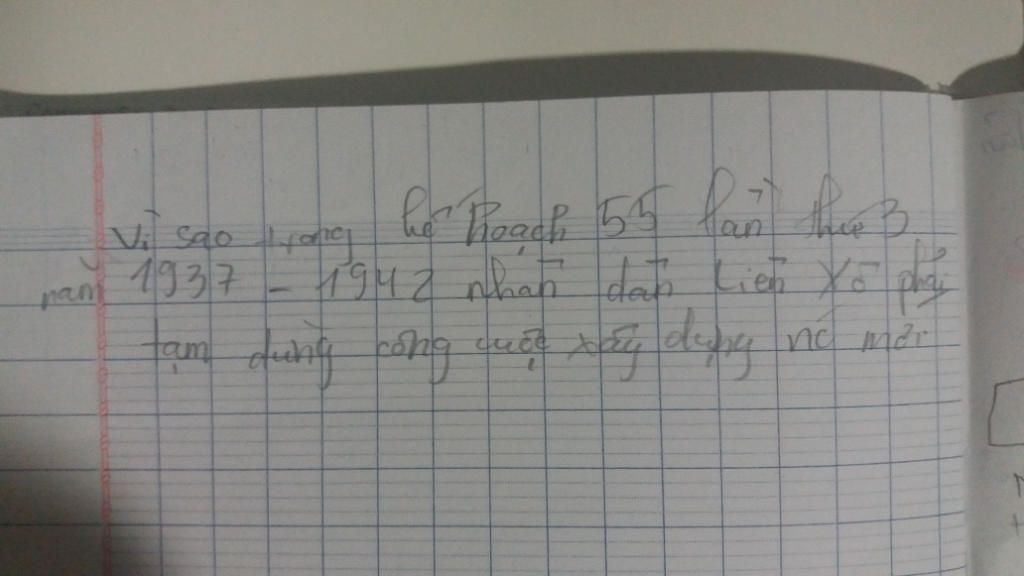 Vì sao trong kế hoạch 55 lần thứ 3
năm 1937 - 1942 nhân dân Liên Xô phải
tạm dừng công cuộc xây dựng nc mới